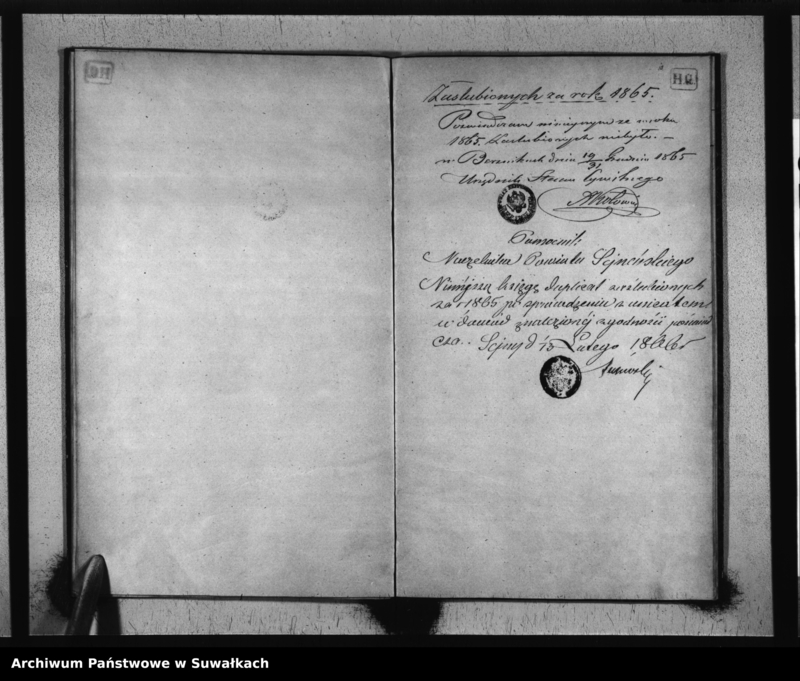 Zaslubionych za rok 1865.
Poswiadczam niniejszym ze w roku
1865. Zaslubionych niebyło. —
w Bereznikach dnia 19/31 Grudnia 1865
Urzędnik Stanu Cywilnego
Pomocnik
Naczelnika Powiatu Sejneńskiego
Niniejszą księgę duplicat zaslubionych
za r 1865 po sprawdzeniu z unicatem
w dowód znalezionéj zgodności poświad
cza. Sejny d Lutego 1866 r
Archiwum Państwowe w Suwałkach